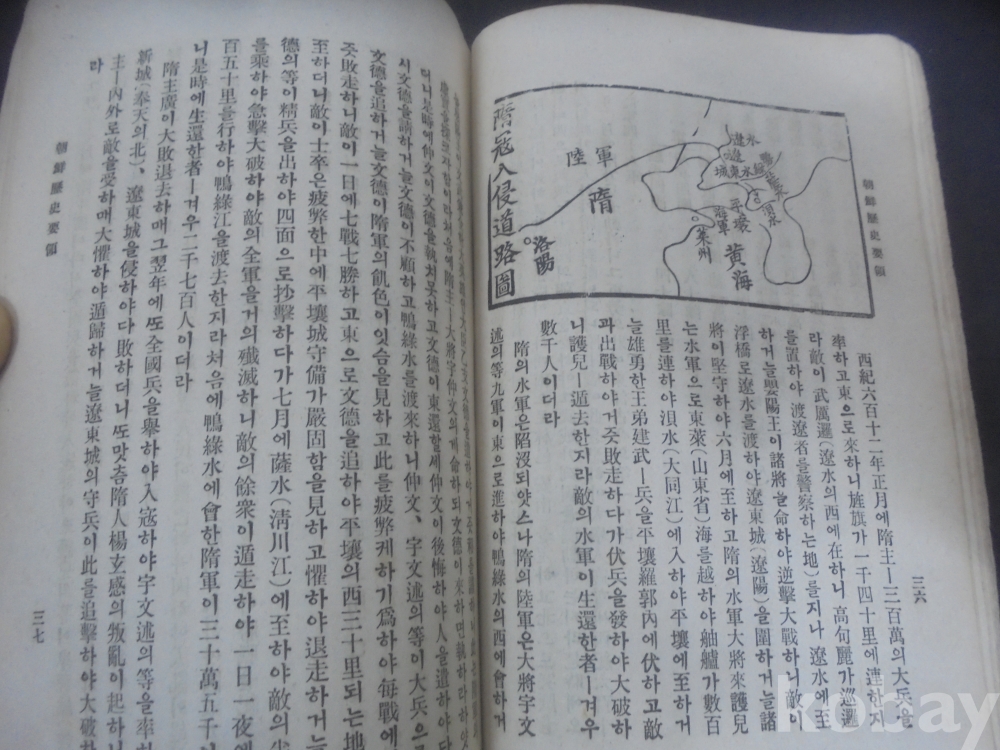 朝鮮歷史要領
三六
隋寇入侵道路圖
陸軍
隋
洛陽
遼水
遼東城
平壤
浿水
海軍
萊州
黃海
西紀六百十二年正月에隋主ㅣ三百萬의大兵을
率하고東으로來하니旌旗가一千四十里에連한지
라敵이武厲邏(遼水의西에在하니高句麗가巡邏
를置하야渡遼者를警察하는地)를지나遼水에至
하거늘嬰陽王이諸將을命하야逆擊大戰하니敵이
浮橋로遼水를渡하야遼東城(遼陽)을圍하거늘諸
將이堅守하야六月에至하고隋의水軍大將來護兒
는水軍으로東萊(山東省)海를越하야舳艫가數百
里를連하야浿水(大同江)에入하야平壤에至하거
늘雄勇한王弟建武ㅣ兵을平壤羅郭內에伏하고敵
과出戰하야거즛敗走하다가伏兵을發하야大破하
니護兒ㅣ遁去한지라敵의水軍이生還한者ㅣ겨우
數千人이더라
隋의水軍은陷沒되얏스나隋의陸軍은大將宇文
述의等九軍이東으로進하야鴨綠水의西에會하거
隋主ㅣ大將仲文의게命하되文德이來하면執하라하얏
더니是時에仲文이文德을執치못하고文德이東還할세仲文이後悔하야人을遣하야다
시文德을請하거늘文德이不顧하고鴨綠水를渡來하니仲文、宇文述의等이大兵으로
文德을追하거늘文德이隋軍의飢色이잇슴을見하고此를疲弊케하기爲하야每戰에거
즛敗走하니敵이一日에七戰七勝하고東으로文德을追하야平壤의西三十里되는地에
至하더니敵이士卒은疲弊한中에平壤城守備가嚴固함을見하고懼하야退走하거늘
德의等이精兵을出하야四面으로抄擊하다가七月에薩水(淸川江)에至하야敵의半
를乘하야急擊大破하야敵의全軍을거의殲滅하니敵의餘衆이遁走하야一日一夜에
百五十里를行하야鴨綠江을渡去한지라처음에鴨綠水에會한隋軍이三十萬五千이
니是時에生還한者ㅣ겨우二千七百人이더라
隋主廣이大敗退去하매그翌年에또全國兵을擧하야入寇하야宇文述의等을率하
新城(奉天의北)、遼東城을侵하야다敗하더니또맛츰隋人楊玄感의叛亂이起하니
主ㅣ內外로敵을受하매大懼하야遁歸하거늘遼東城의守兵이此를追擊하야大破하
라
朝鮮歷史要領
三七
kobay